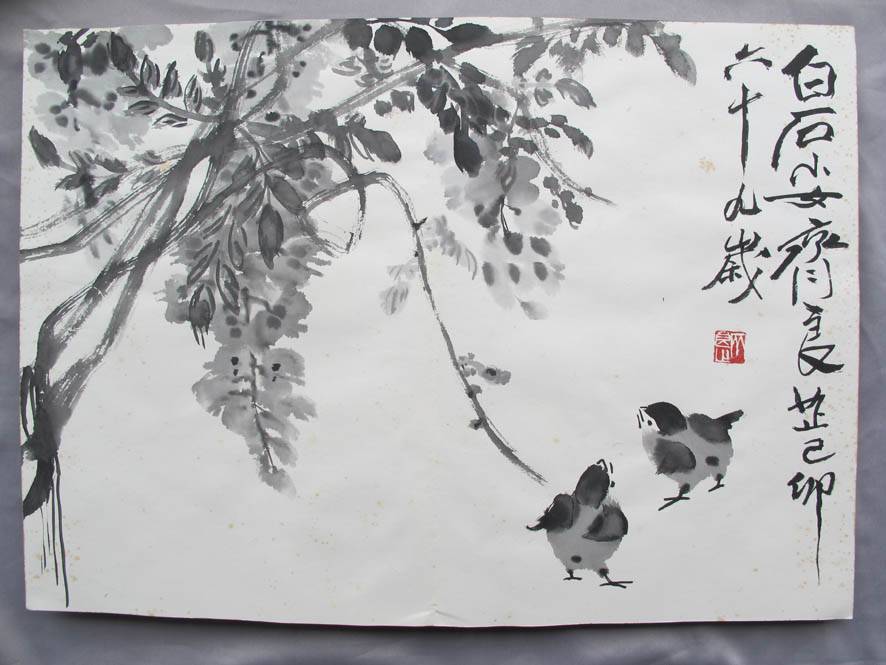 白石小女齊良芷己卯
六十九歲